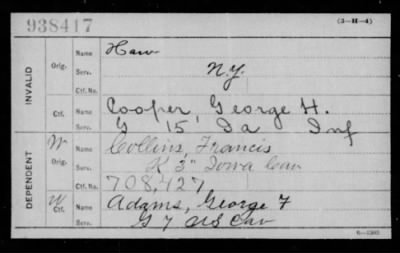 938417 (3-H-4)
INVALID
Orig. Name Haw
Serv. N.Y.
Ctf. No.
Ctf. Name Cooper, George H.
Serv. G 15 Ia Inf
DEPENDENT
W Orig. Name Collins, Francis
Serv. K 3" Iowa Cav
Ctf. No. 708,427
W Ctf. Name Adams, George F
Serv. G 7 US Cav